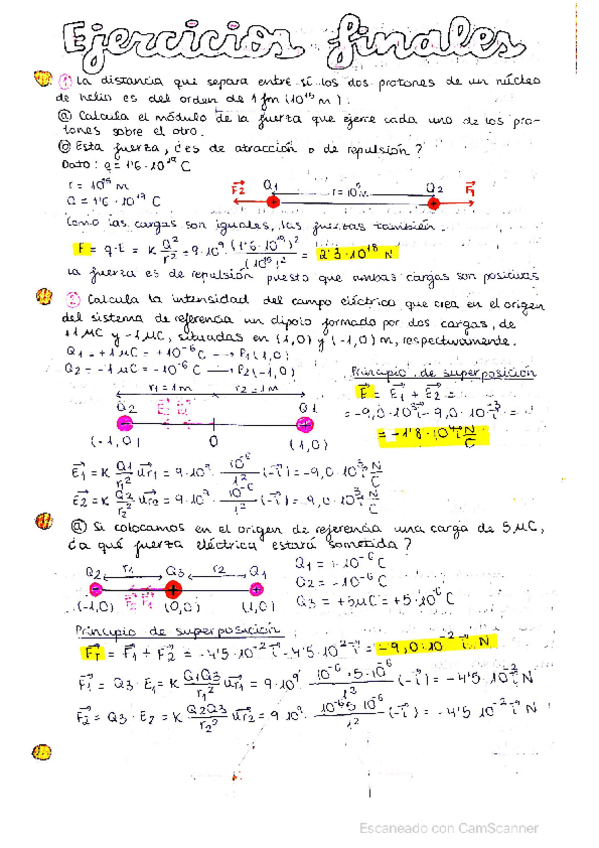 Ejercicios finales
① La distancia que separa entre sí los dos protones de un núcleo
de helio es del orden de 1 fm (10¹⁵ m).
ⓐ Calcula el módulo de la fuerza que ejerce cada uno de los pro-
tones sobre el otro.
ⓑ Esta fuerza, ¿es de atracción o de repulsión?
Dato: q = 1'6·10¹⁹ C
r = 10¹⁵ m
Q = 1'6·10¹⁹ C
F₂ Q₁ r = 10¹⁵ m Q₂ F₁
Como las cargas son iguales, las fuerzas también.
F = q·E = K Q²/r² = 9·10⁹ · (1'6·10¹⁹)²/(10¹⁵)² = 2'3·10¹⁸ N
La fuerza es de repulsión puesto que ambas cargas son positivas
② Calcula la intensidad del campo eléctrico que crea en el origen
del sistema de referencia un dipolo formado por dos cargas, de
+1 μC y -1 μC, situadas en (1,0) y (-1,0) m, respectivamente.
Q₁ = +1 μC = +10⁻⁶ C → P₁ (1,0)
Q₂ = -1 μC = -10⁻⁶ C → P₂ (-1,0)
r₁ = 1m r₂ = 1m
Q₂ Q₁
(-1,0) 0 (1,0)
Principio de superposición
E = E₁ + E₂ =
= -9,0·10³ i - 9,0·10³ i =
= -1'8·10⁴ i N/C
E₁ = K Q₁/r₁² ur₁ = 9·10⁹ · 10⁻⁶/1² (-i) = -9,0·10³ i N/C
E₂ = K Q₂/r₂² ur₂ = 9·10⁹ · 10⁻⁶/1² (-i) = 9,0·10³ i N/C
ⓐ Si colocamos en el origen de referencia una carga de 5 μC,
¿a qué fuerza eléctrica estará sometida?
Q₂ r₁ Q₃ r₂ Q₁
(-1,0) (0,0) (1,0)
Q₁ = +10⁻⁶ C
Q₂ = -10⁻⁶ C
Q₃ = +5 μC = +5·10⁻⁶ C
Principio de superposición
F_T = F₁ + F₂ = -4'5·10⁻² i - 4'5·10⁻² i = -9,0·10⁻² i N
F₁ = Q₃·E₁ = K Q₁Q₃/r₁² ur₁ = 9·10⁹ · 10⁻⁶·5·10⁻⁶/1² (-i) = -4'5·10⁻² i N
F₂ = Q₃·E₂ = K Q₂Q₃/r₂² ur₂ = 9·10⁹ · 10⁻⁶·5·10⁻⁶/1² (-i) = -4'5·10⁻² i N
Escaneado con CamScanner